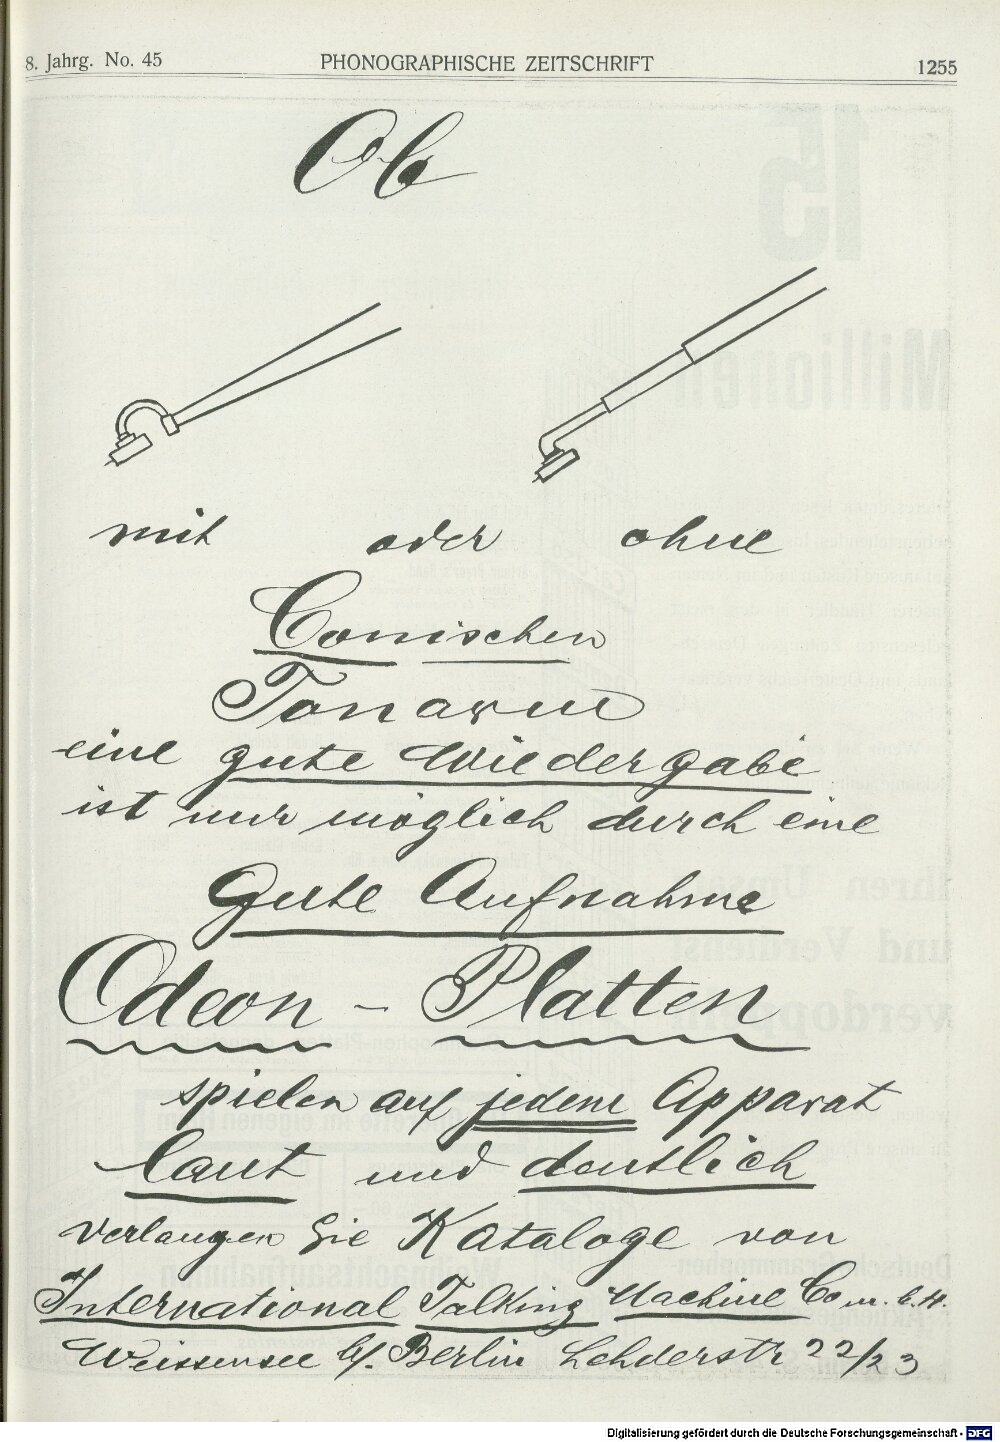 8. Jahrg. No. 45 PHONOGRAPHISCHE ZEITSCHRIFT 1255
Ob
mit oder ohne
Conischen
Tonarm
eine gute Wiedergabe
ist nur möglich durch eine
Gute Aufnahme
Odeon - Platten
spielen auf jedem Apparat
laut und deutlich
verlangen Sie Kataloge von
International Talking Machine Co m. b. H.
Weissensee b/. Berlin Lehderstr 22/23
Digitalisierung gefördert durch die Deutsche Forschungsgemeinschaft - DFG